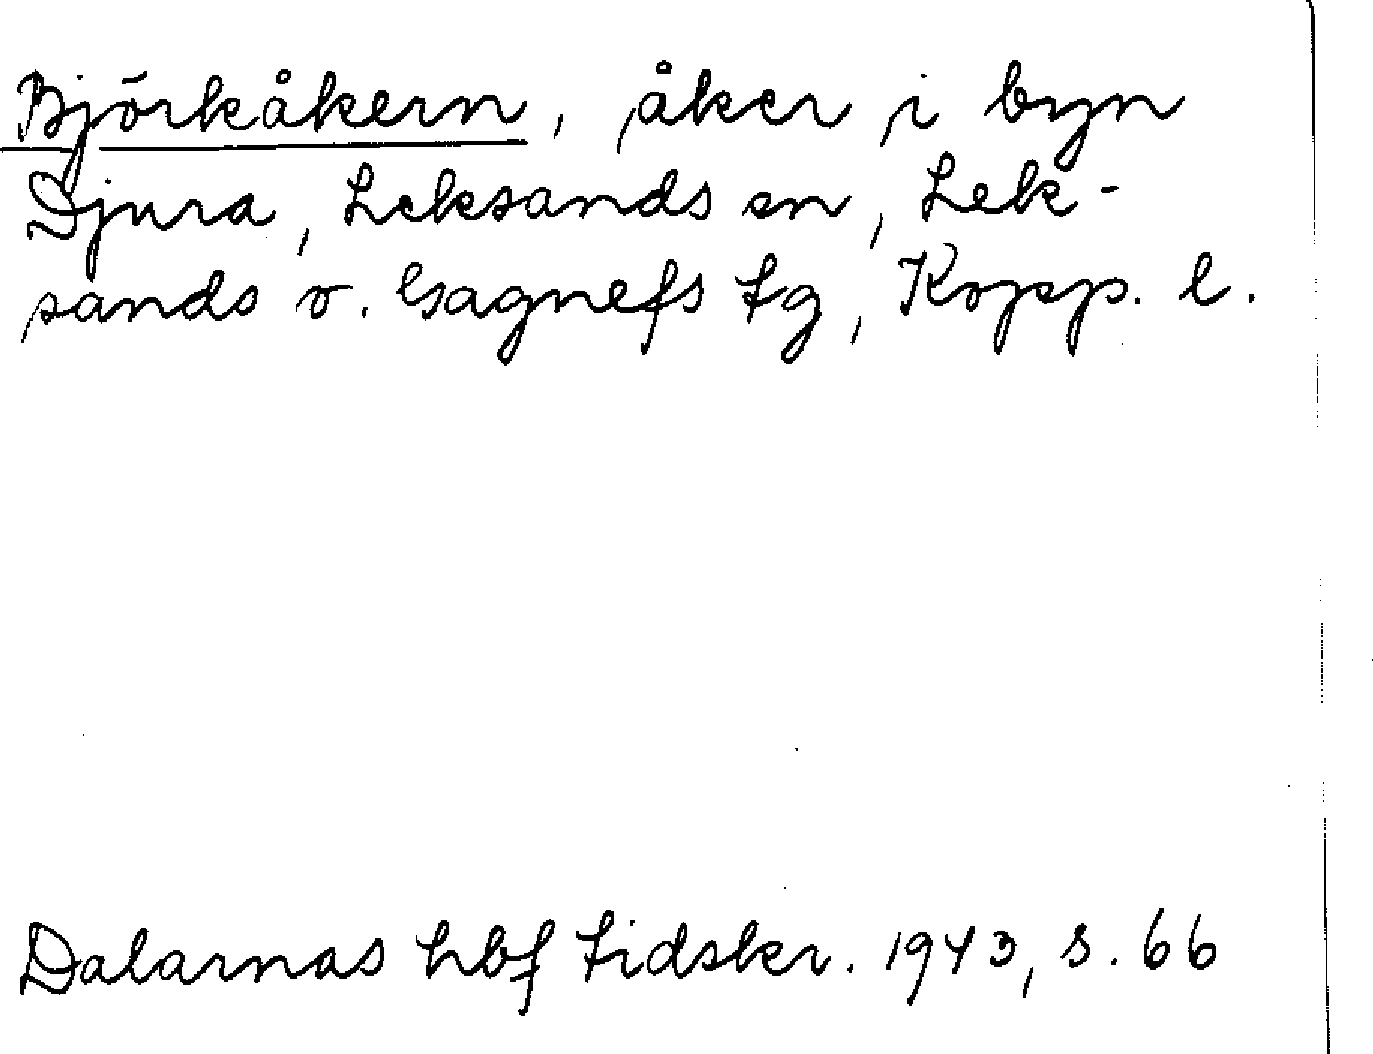 Björkåkern, åker i byn
Djura, Leksands sn, Lek-
sands o. Gagnefs tg, Kopp. l.
Dalarnas hbf tidskr. 1943, s. 66